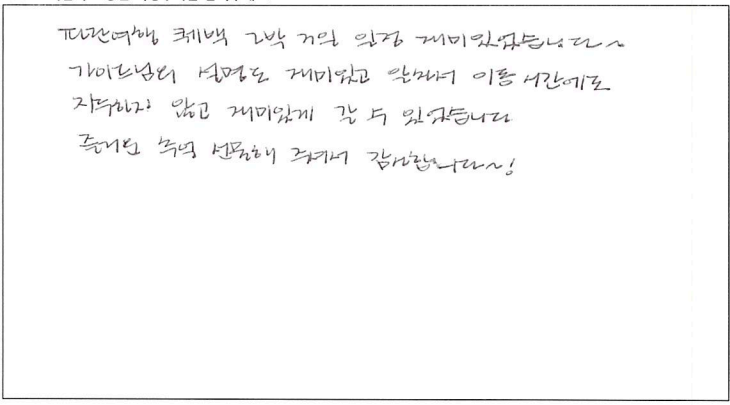 파란여행 퀘백 2박 3일 일정 재미있었습니다~
가이드님의 설명도 재미있고 알차서 이동시간에도
지루하지 않고 재미있게 갈 수 있었습니다
즐거운 추억 선물해 주셔서 감사합니다~!